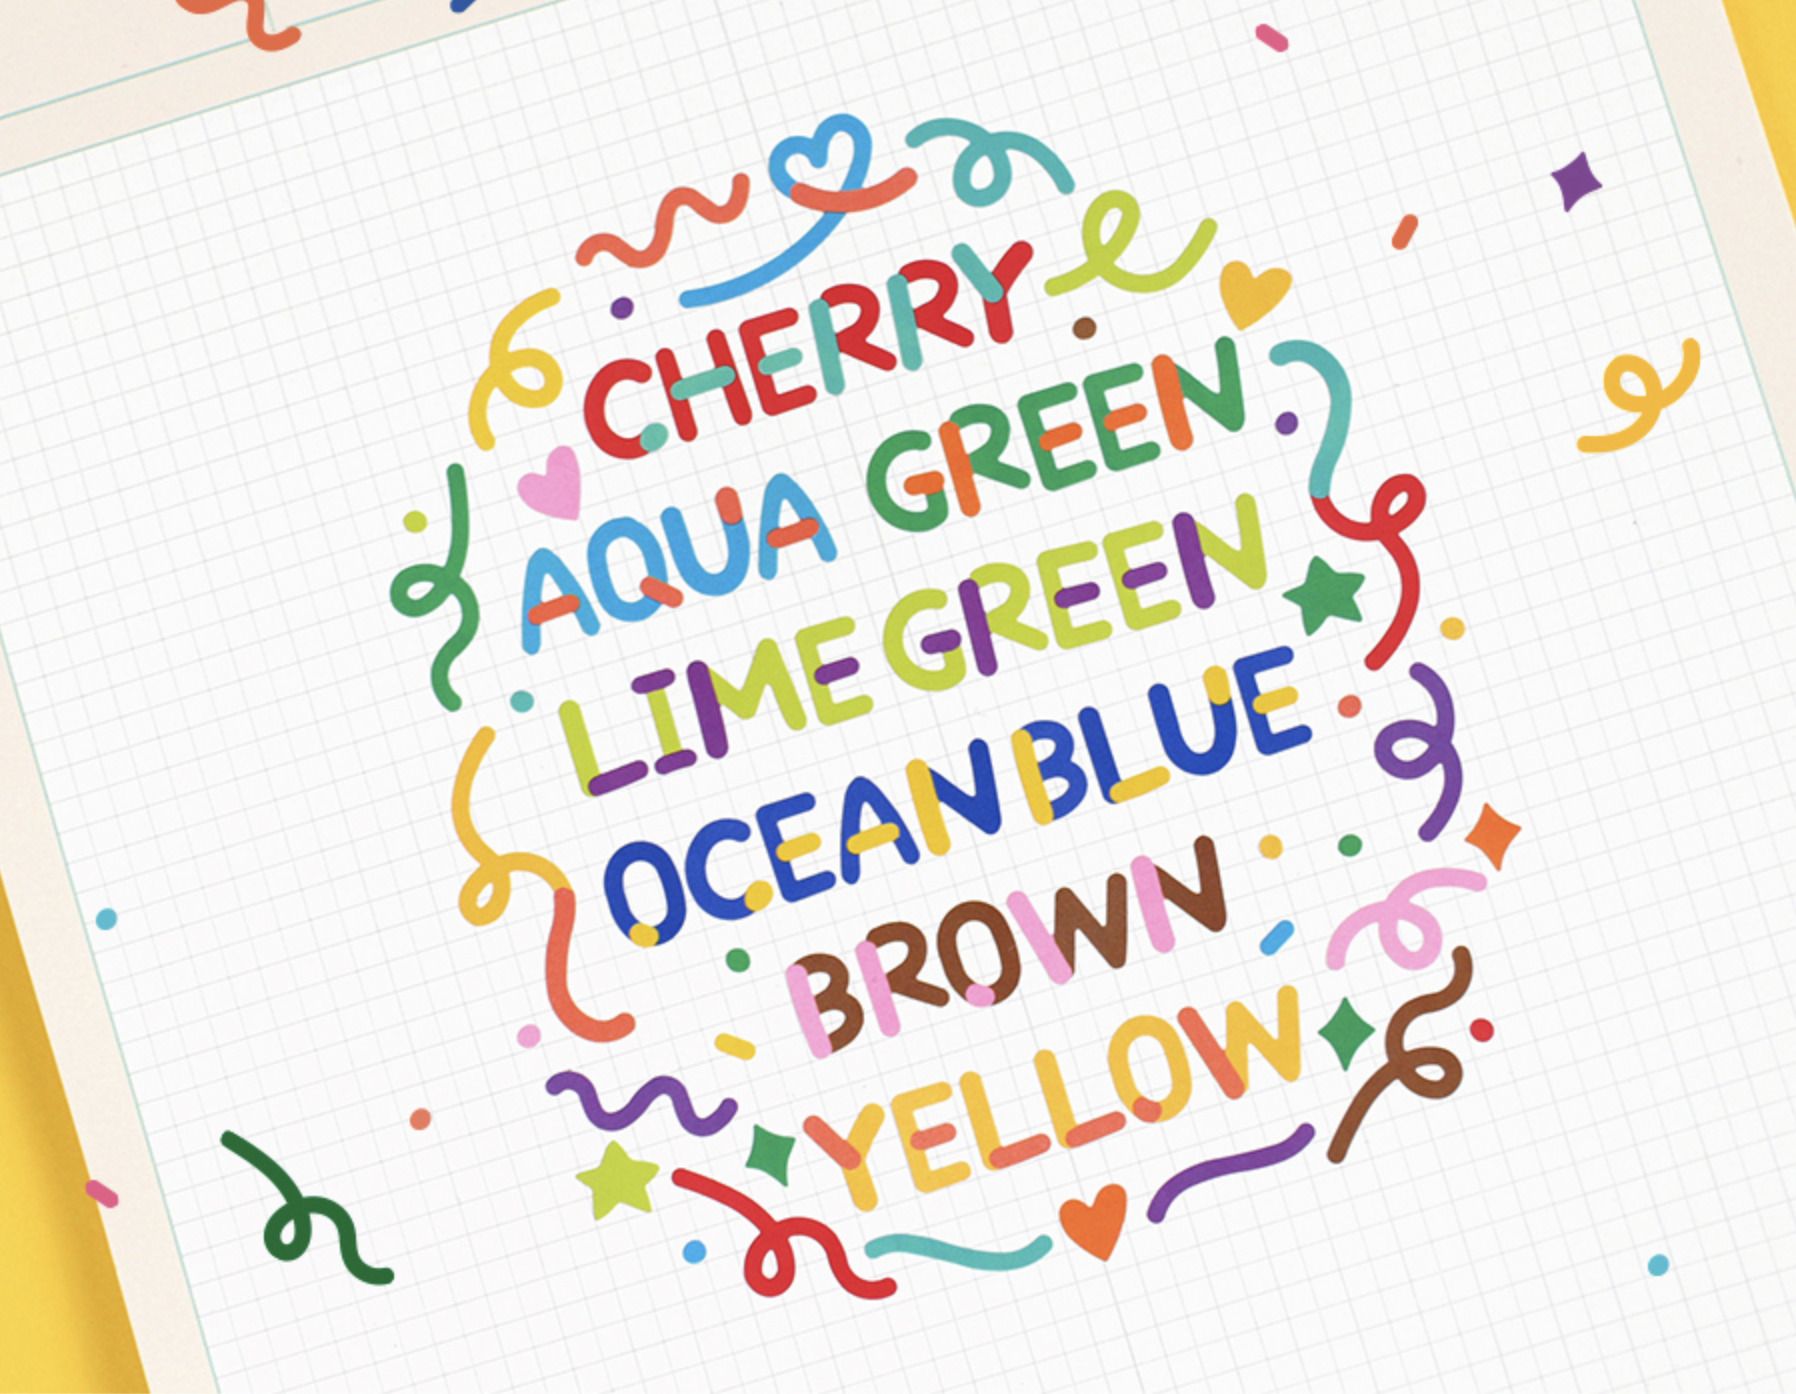 CHERRY
AQUA GREEN
LIME GREEN
OCEAN BLUE
BROWN
YELLOW